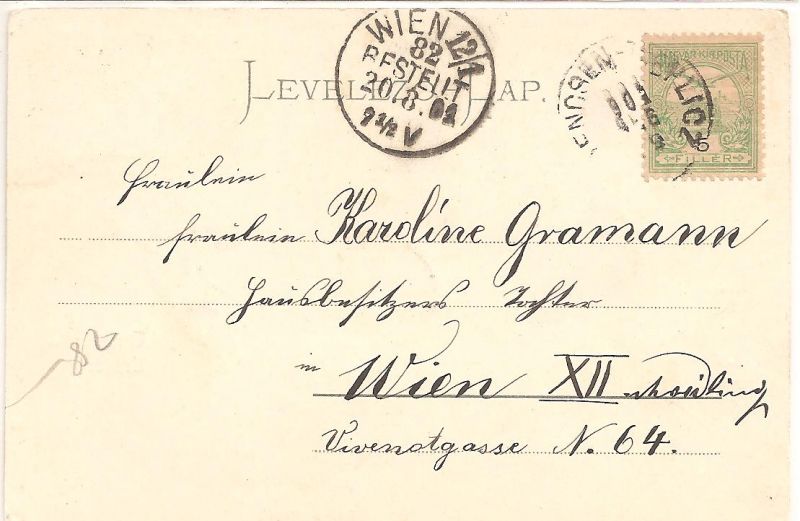 WIEN 12/1
82
BESTELLT
20.8.01
9 1/2 V
LEVELEZŐ-LAP.
MAGYAR KIR. POSTA
5
FILLÉR
Fräulein
Fräulein Karoline Gramann
Hausbesitzers Tochter
in Wien XII
Vivenotgasse N. 64.
82